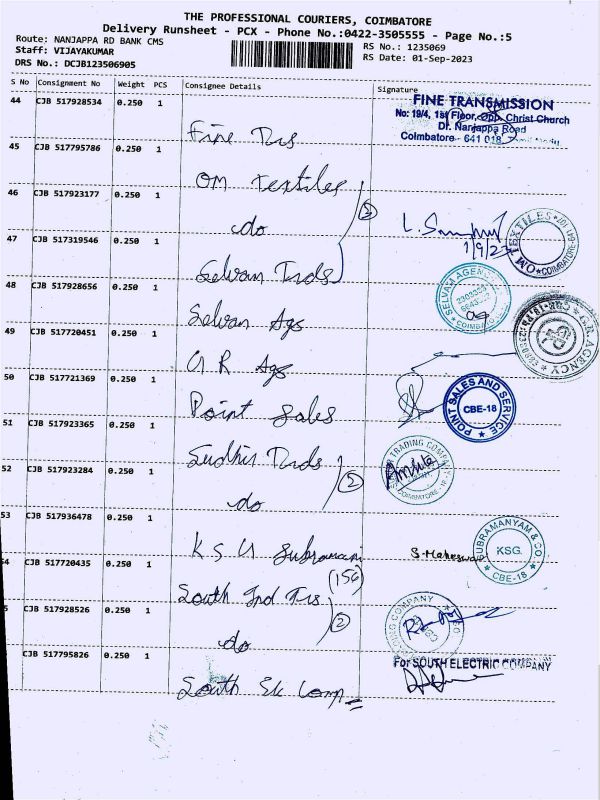 THE PROFESSIONAL COURIERS, COIMBATORE
Delivery Runsheet - PCX - Phone No.:0422-3505555 - Page No.:5
Route: NANJAPPA RD BANK CMS
RS No.: 1235069
Staff: VIJAYAKUMAR
RS Date: 01-Sep-2023
DRS No.: DCJB123506905
S No Consignment No Weight PCS Consignee Details Signature
44 CJB 517928534 0.250 1
FINE TRANSMISSION
No: 19/4, 1st Floor, Opp. Christ Church
Dr. Nanjappa Road
Coimbatore - 641 018
Fine Trs
45 CJB 517795786 0.250 1
OM Textiles
46 CJB 517923177 0.250 1
do
3
1/9/23
OM TEXTILES COIMBATORE
47 CJB 517319546 0.250 1
Selvam Trds
SELVAM AGENC COIMBA
48 CJB 517928656 0.250 1
Selvam Ags
G.R. AGENCY
49 CJB 517720451 0.250 1
G R Ags
50 CJB 517721369 0.250 1
Point Sales
POINT SALES AND SERVICE
CBE-18
51 CJB 517923365 0.250 1
Sudhir Trds
2
TRADING COMPANY
COIMBATORE - 18
52 CJB 517923284 0.250 1
do
53 CJB 517936478 0.250 1
K S G Subramani
(156)
S. Maheswari
SUBRAMANYAM & CO
KSG.
CBE-18
54 CJB 517720435 0.250 1
South Ind Trs
2
COMPANY
5 CJB 517928526 0.250 1
do
CJB 517795826 0.250 1
For SOUTH ELECTRIC COMPANY
South Elc Comp